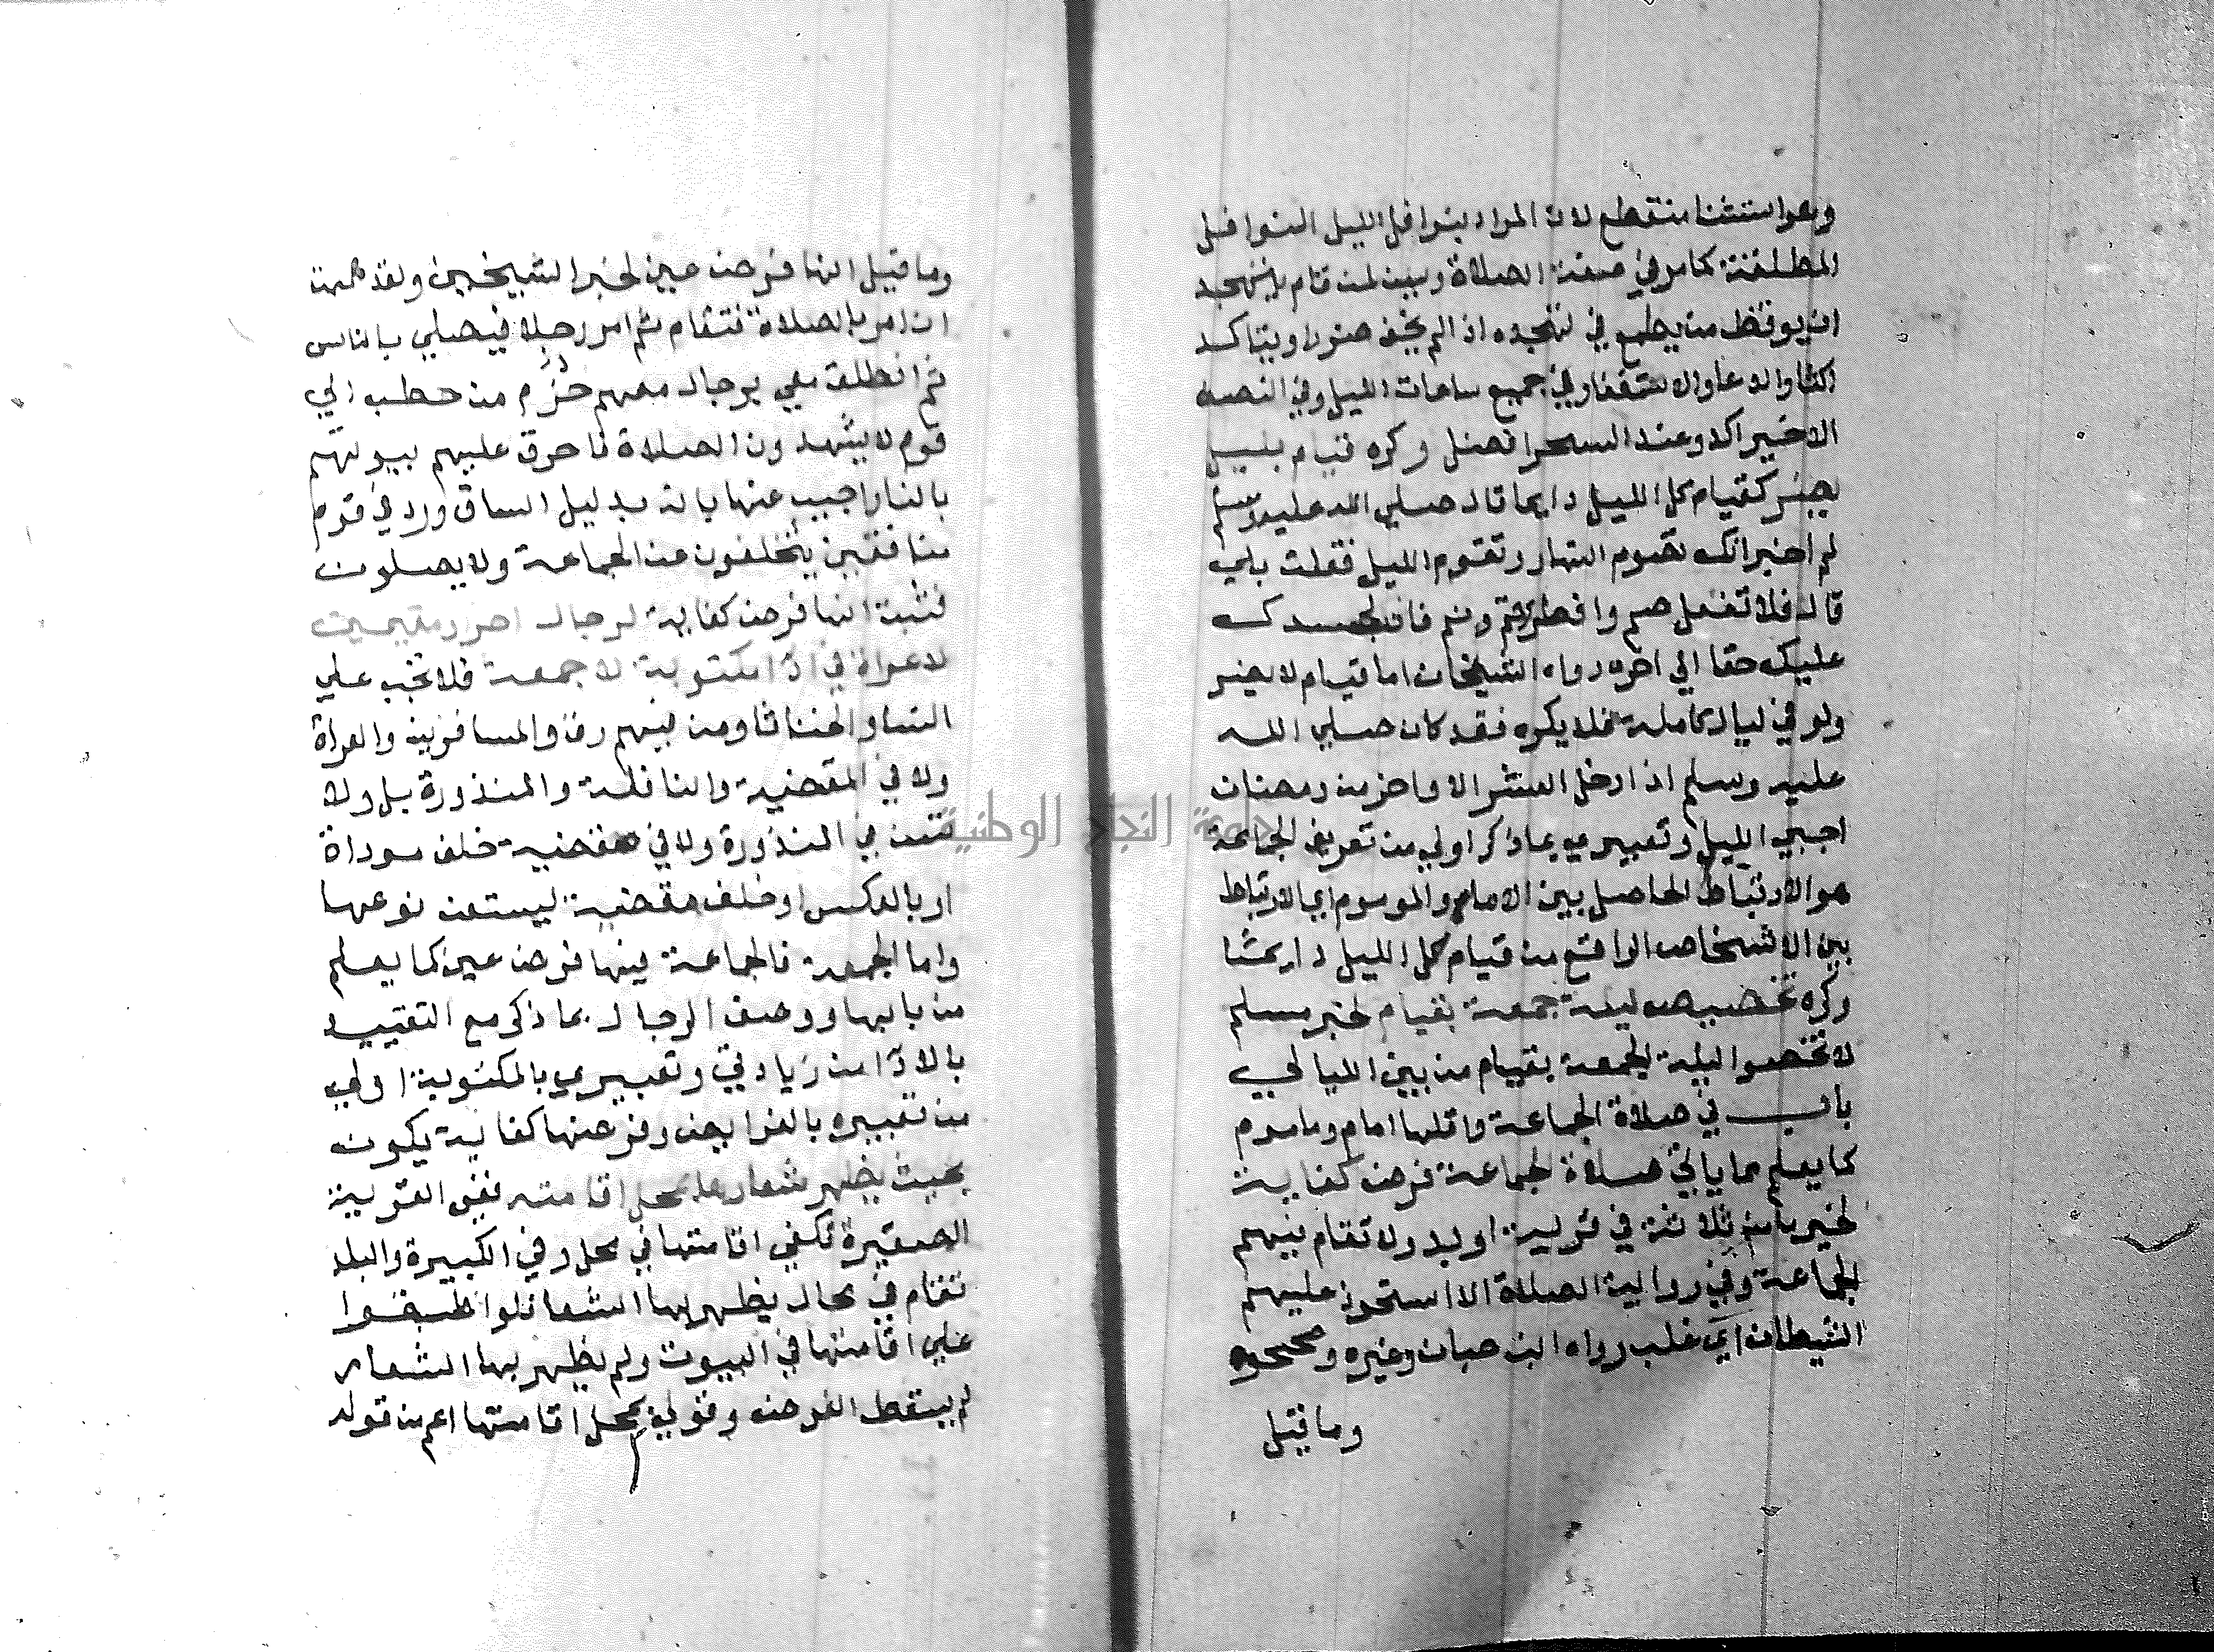 وهو استثنا منقطع لان المراد بنوافل الليل النوافل
المطلقة كما مر في صفة الصلاة وسن لمن قام يتهجد
ان يوقظ من يطمع في تهجده اذا لم يخف ضررا ويتاكد
اكثار الدعا والاستغفار في جميع ساعات الليل وفي النصف
الاخير اكد وعند السحر افضل وكره قيام بليل
يضر كقيام كل الليل دايما قال صلي الله عليه وسلم
لم اخبر انك تصوم النهار وتقوم الليل فقلت بلي
قال فلا تفعل صم وافطر وقم ونم فان لجسدك
عليك حقا الي اخره رواه الشيخان اما قيام لا يضر
ولو في ليال كاملة فلا يكره فقد كان صلي الله
عليه وسلم اذا دخل العشر الاواخر من رمضان
احيي الليل وتعبيري بما ذكر اولي من تعريف الجماعة
هو الارتباط الحاصل بين الامام والموموم اي الارتباط
بين الاشخاص الواقع من قيام كل الليل دايما
وكره تخصيص ليلة جمعة بقيام لخبر مسلم
لا تخصوا ليلة الجمعة بقيام من بين الليالي
باب في صلاة الجماعة واقلها امام وماموم
كما يعلم مما ياتي صلاة الجماعة فرض كفاية
لخبر ما من ثلاثة في قرية او بدو لا تقام فيهم
الجماعة وفي رواية الصلاة الا استحوذ عليهم
الشيطان اي غلب رواه ابن حبان وغيره وصححوه
وما قيل
وما قيل انها فرض عين لخبر الشيخين ولقد هممت
ان امر بالصلاة فتقام ثم امر رجلا فيصلي بالناس
ثم انطلق معي برجال معهم حزم من حطب الي
قوم لا يشهدون الصلاة فاحرق عليهم بيوتهم
بالنار اجيب عنها بانه بدليل الساق ورد في قوم
منافقين يتخلفون عن الجماعة ولا يصلون
فثبت انها فرض كفاية لرجال احرار مقيمين
لا عراة في ادا مكتوبة لا جمعة فلا تجب علي
النسا والخناثا ومن فيهم رق والمسافرين والعراة
ولا في المقضية والنافلة والمنذورة بل ولا
تسن في المنذورة ولا في مقضية خلف موداة
او بالعكس او خلف مقضية ليست من نوعها
واما الجمعة فالجماعة فيها فرض عين كما يعلم
من بابها ووصف الرجال بما ذكر مع التقييد
بالادا من زيادتي وتعبيري بالمكتوبة اولي
من تعبيره بالفرايض وفرضها كفاية يكون
بحيث يظهر شعارها بمحل اقامته ففي القرية
الصغيرة تكفي اقامتها في محل وفي الكبيرة والبلد
تقام في محال يظهر بها الشعار فلو اطبقوا
علي اقامتها في البيوت ولم يظهر بها الشعار
لم يسقط الفرض وقولي بمحل اقامتها اعم من قوله